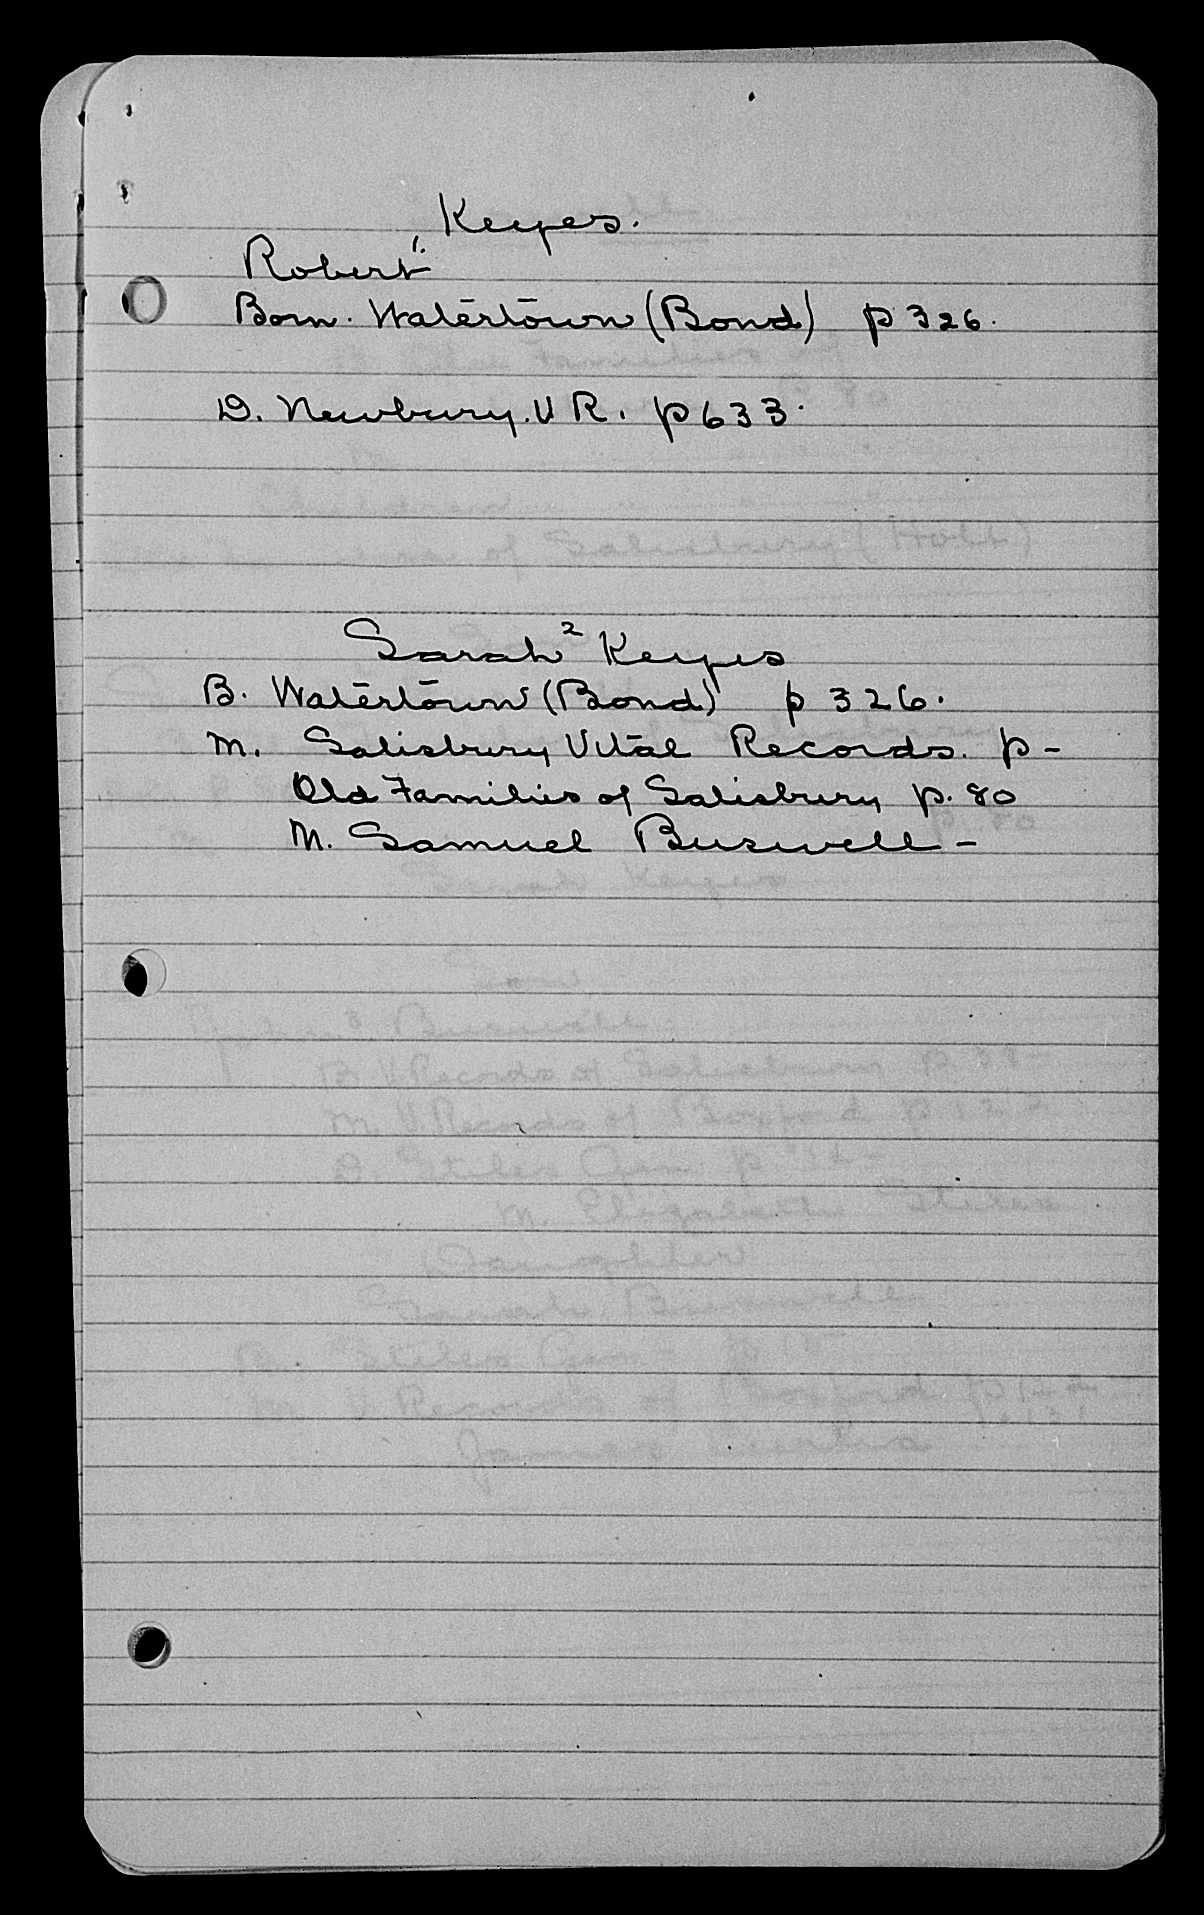 Keyes.
Robert 1.
Born. Watertown (Bond) p 326.
D. Newbury. V R. p 633.
Sarah ² Keyes
B. Watertown (Bond) p 326.
M. Salisbury Vital Records. p -
Old Families of Salisbury p. 80
M. Samuel Buswell -